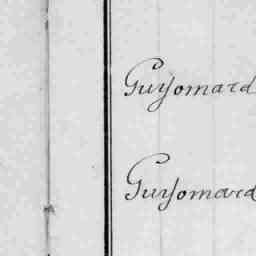 Guyomard
Guyomard